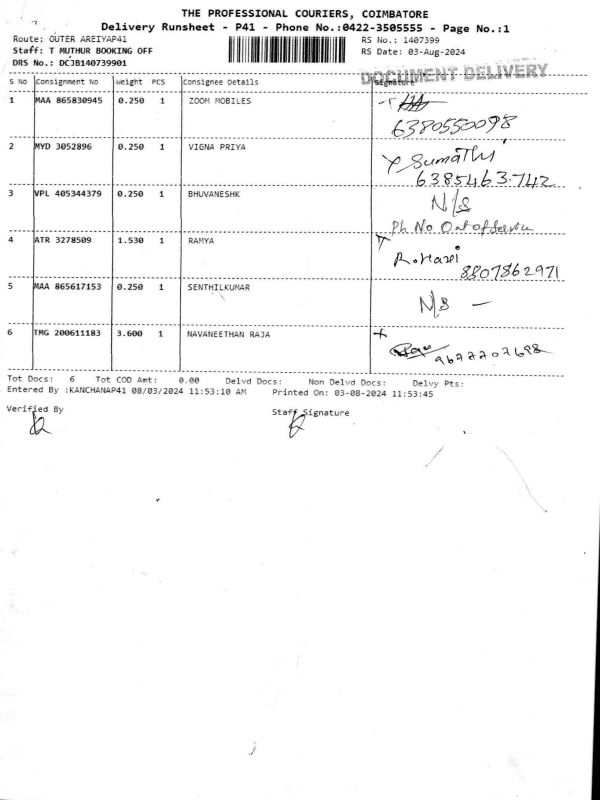 THE PROFESSIONAL COURIERS, COIMBATORE
Delivery Runsheet - P41 - Phone No.:0422-3505555 - Page No.:1
Route: OUTER AREIYAP41 RS No.: 1407399
Staff: T MUTHUR BOOKING OFF RS Date: 03-Aug-2024
DRS No.: DCJB140739901
DOCUMENT DELIVERY
S No Consignment No Weight PCS Consignee Details Signature
1 MAA 865830945 0.250 1 ZOOM MOBILES
6380550098
2 MYD 3052896 0.250 1 VIGNA PRIYA Sumathi
6385463742
3 VPL 405344379 0.250 1 BHUVANESHK N/S
Ph No Out of Service
4 ATR 3278509 1.530 1 RAMYA
8807862971
5 MAA 865617153 0.250 1 SENTHILKUMAR N/S —
6 TMG 200611183 3.600 1 NAVANEETHAN RAJA
Tot Docs: 6 Tot COD Amt: 0.00 Delvd Docs: Non Delvd Docs: Delvy Pts:
Entered By :KANCHANAP41 08/03/2024 11:53:10 AM Printed On: 03-08-2024 11:53:45
Verified By Staff Signature